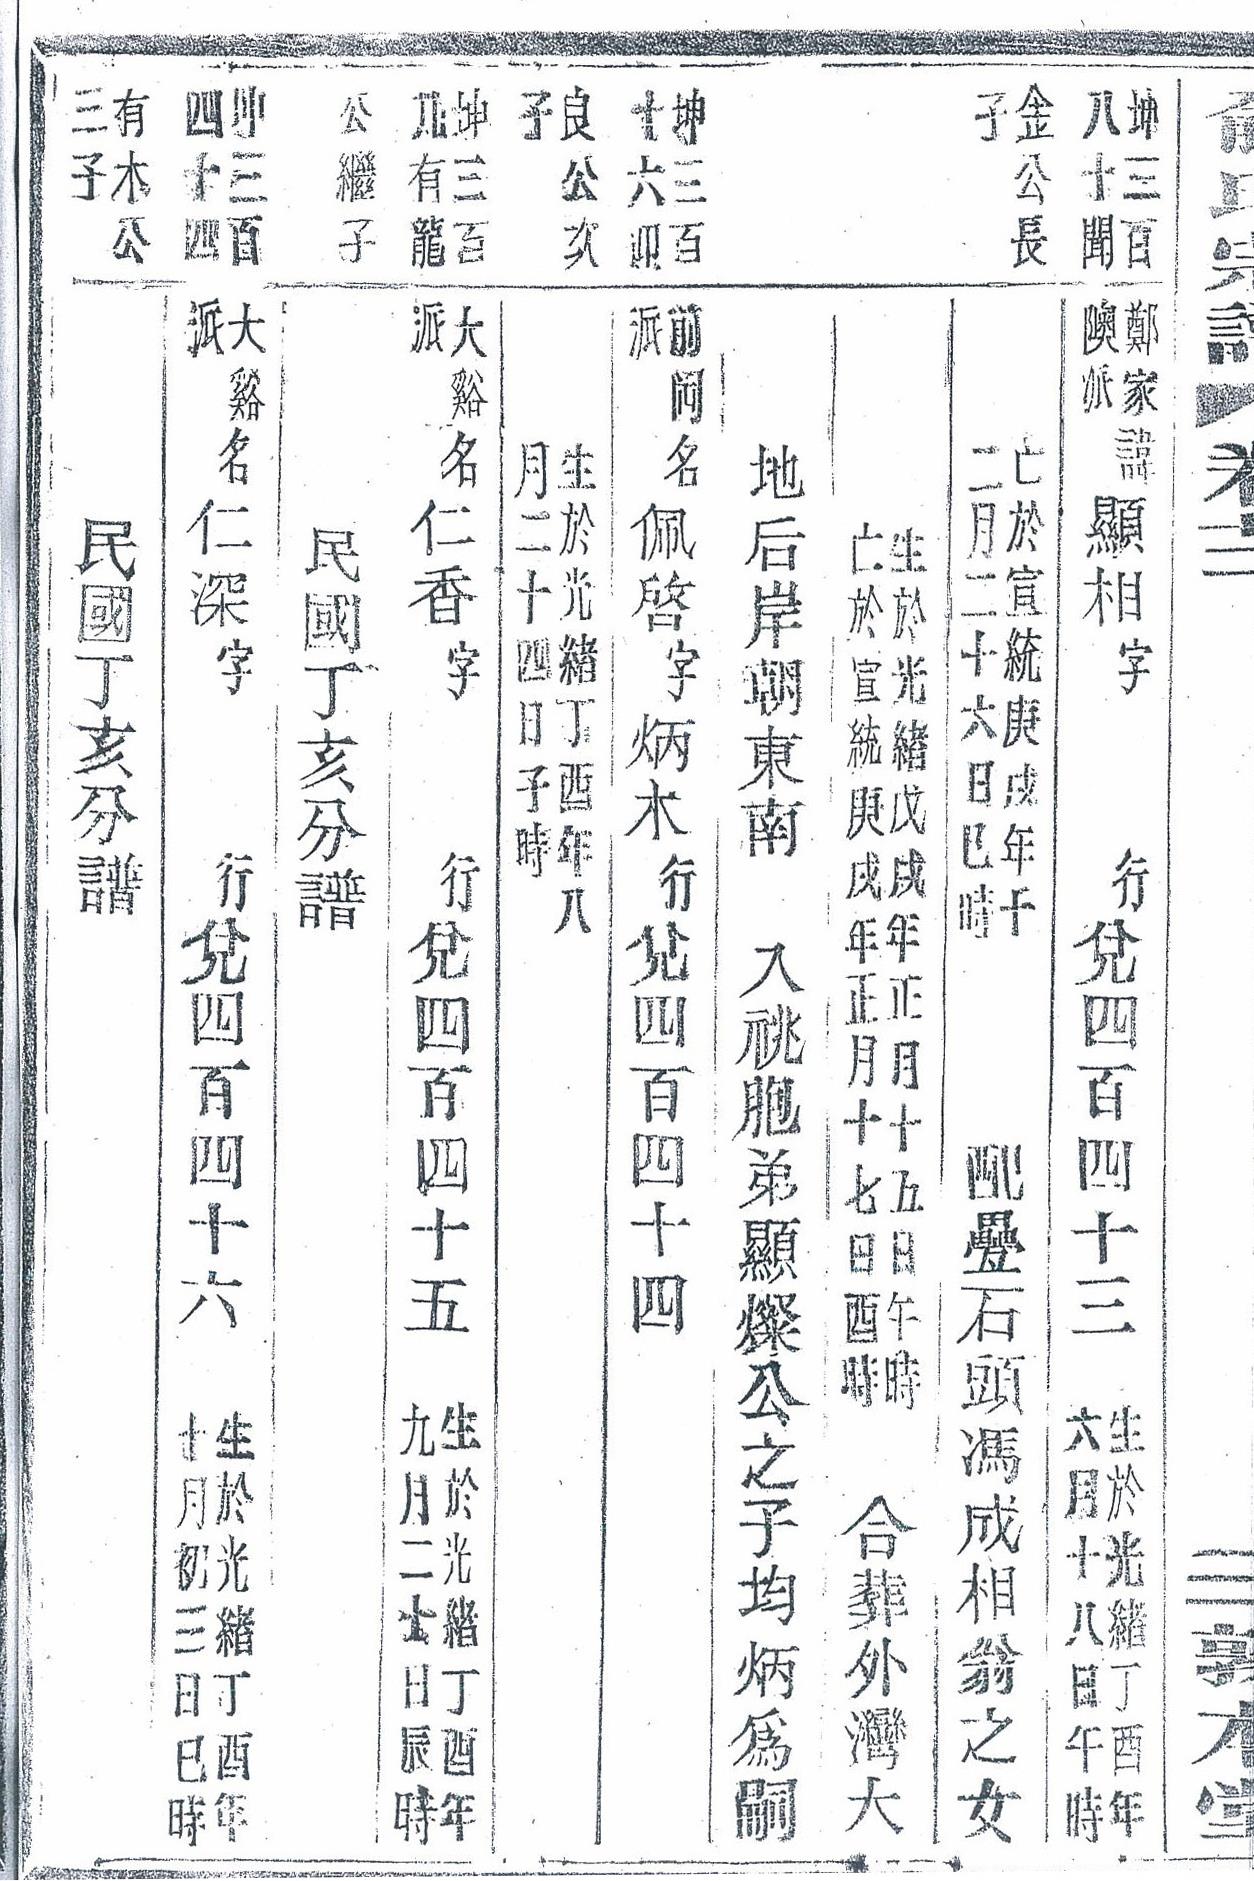 俞氏宗譜 卷二 三 敦本堂
坤三百
八十聞
金公長
子
鄭家
隩派
諱顯相字 行兌四百四十三
生於光緒丁酉年
六月十八日午時
亡於宣統庚戌年十
二月二十六日巳時
配疊石頭馮成相翁之女
生於光緒戊戌年正月十五日午時
亡於宣統庚戌年正月十七日酉時
合葬外灣大
地后岸朝東南 入祧胞弟顯燦公之子均炳爲嗣
坤三百
十六迎
良公次
子
前岡
派
名佩啓字炳木行兌四百四十四
生於光緒丁酉年八
月二十四日子時
坤三百
九有龍
公繼子
大谿
派
名仁香字 行兌四百四十五
生於光緒丁酉年
九月二十日辰時
民國丁亥分譜
坤三百
四十四
有木公
三子
大谿
派
名仁深字 行兌四百四十六
生於光緒丁酉年
十月初三日巳時
民國丁亥分譜